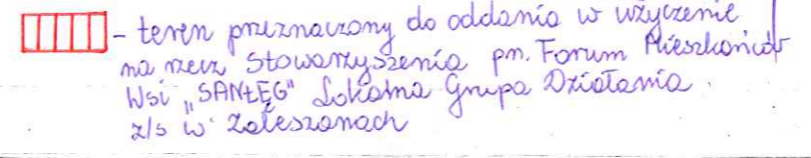 - teren przeznaczony do oddania w użyczenie
na rzecz Stowarzyszenia pn. Forum Mieszkańców
Wsi „SANŁĘG" Lokalna Grupa Działania
z/s w Zaleszanach